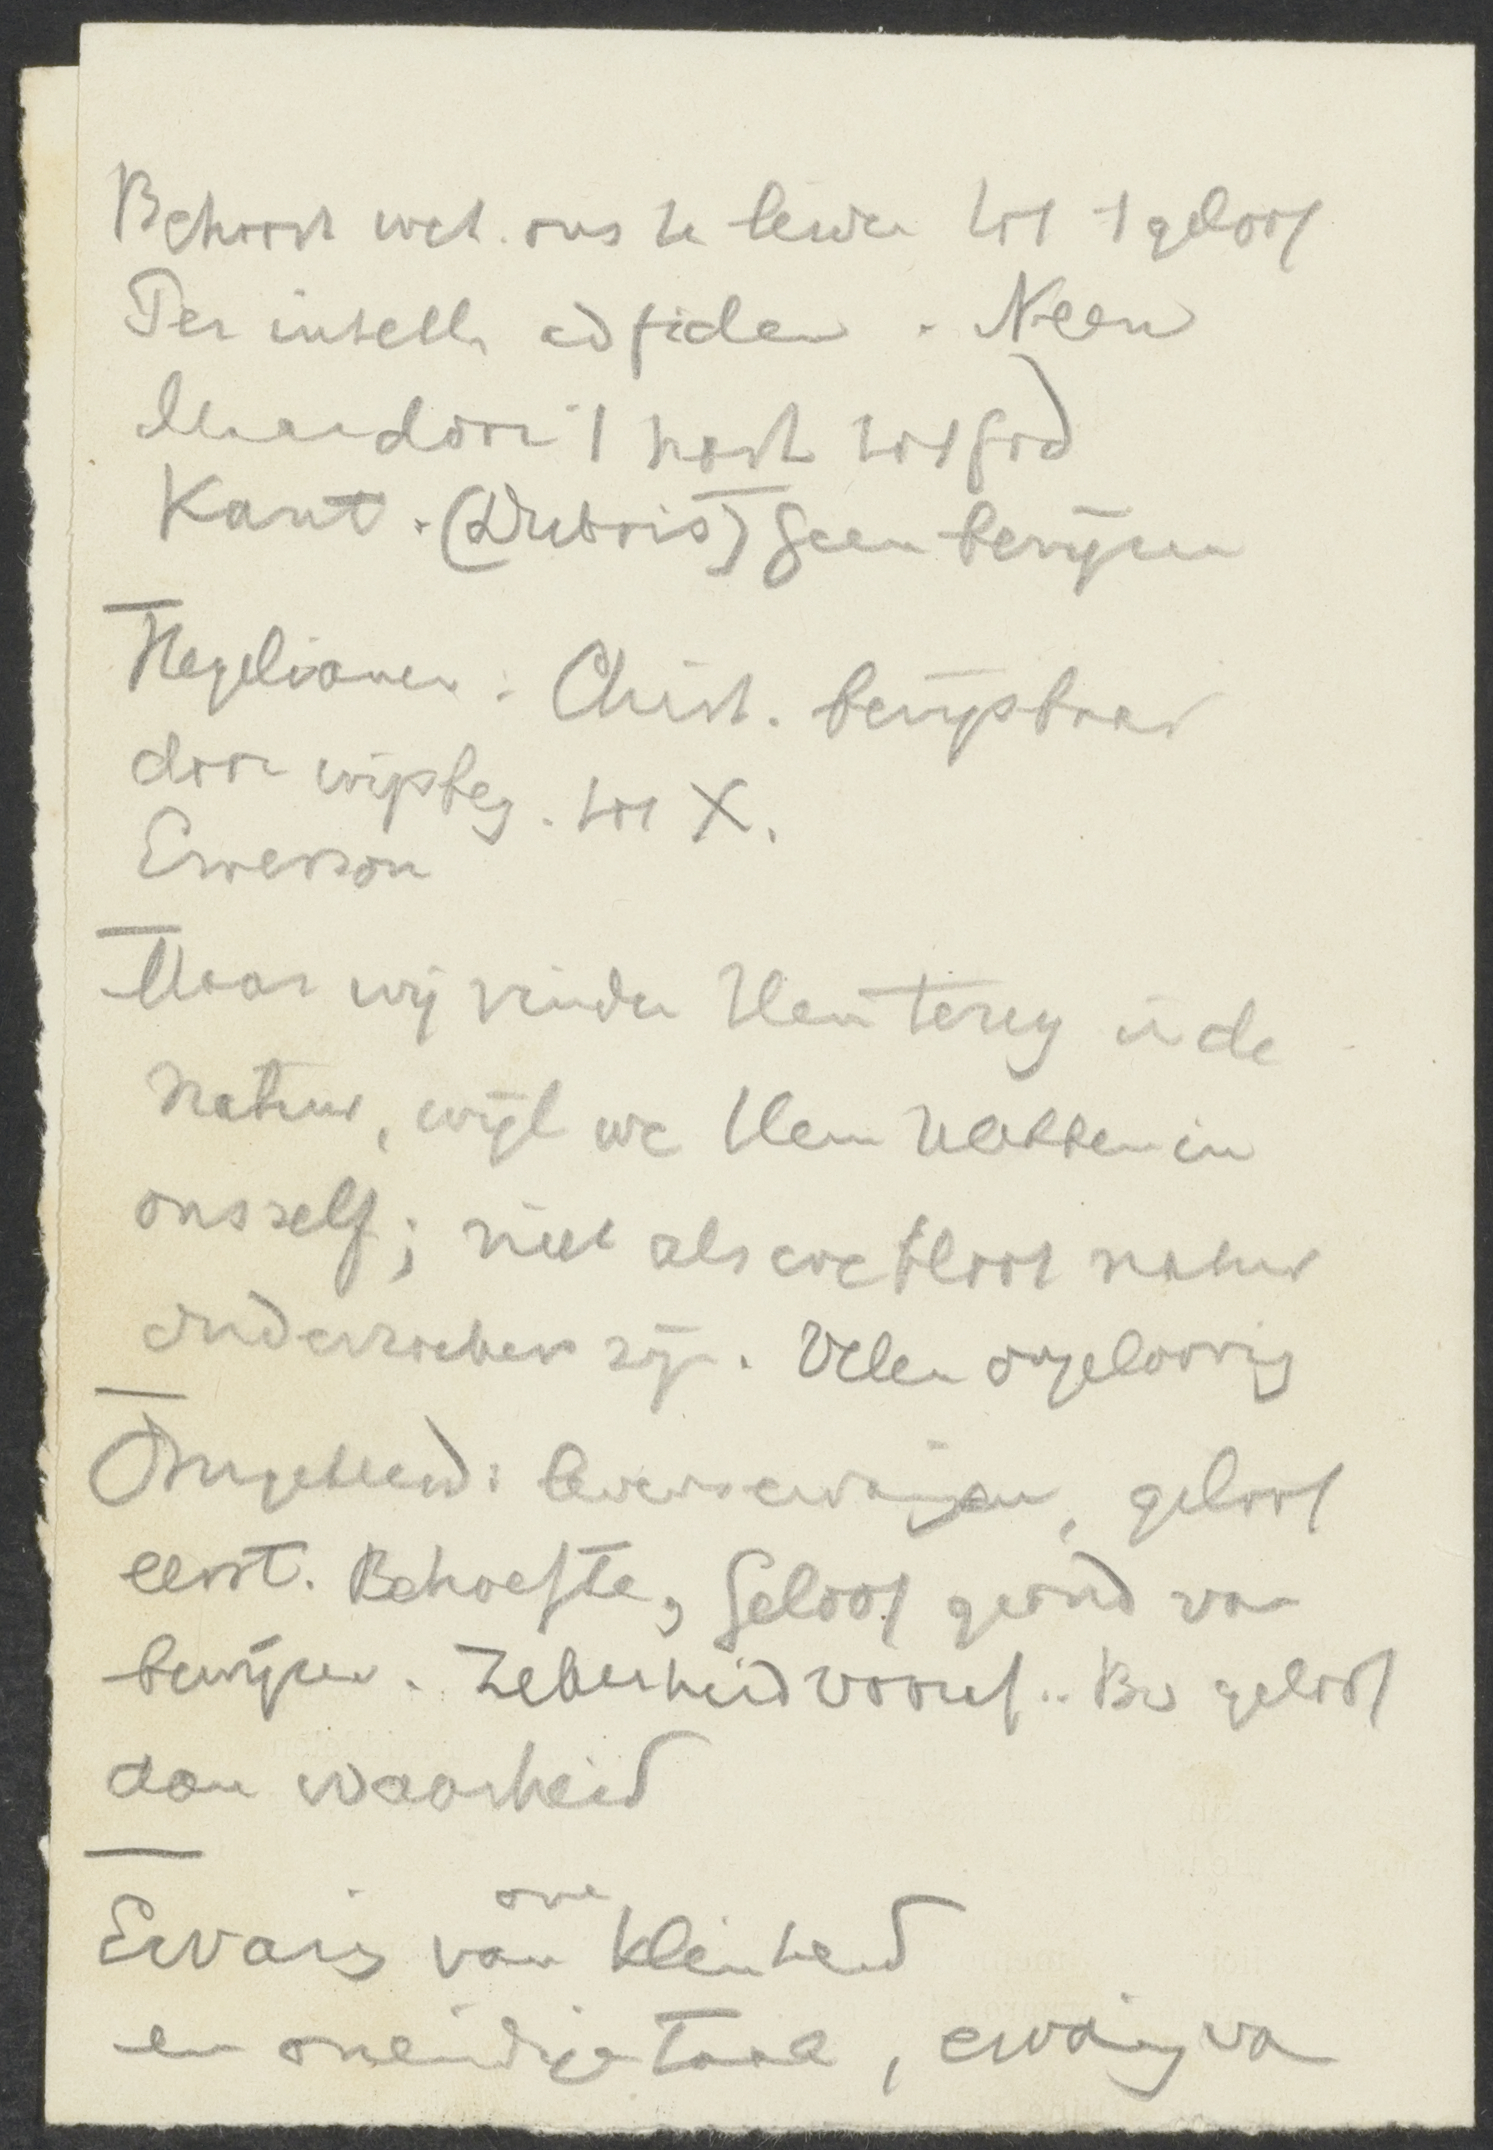 Behoort wet. ons te leiden tot 't geloof
Per intell. ad fidem. Neen
Maar door 't hart tot God
Kant. (Dubois) Geen bewijzen
Hegelianen: Christ. bewijsbaar
door wijsbeg. tot X.
Emerson
Maar wij vinden Hem terug in de
natuur, wijl we Hem hebben in
onszelf; niet als we bloot natuur
onderzoekers zijn. Velen ongeloovig
Omgekeerd: levenservaringen, geloof
eerst. Behoefte, Geloof grond van
bewijzen. Zekerheid vooruf.. Bev geloof
dan waarheid
Ervaring van onze kleinheid
en oneindige taak, ervaring van